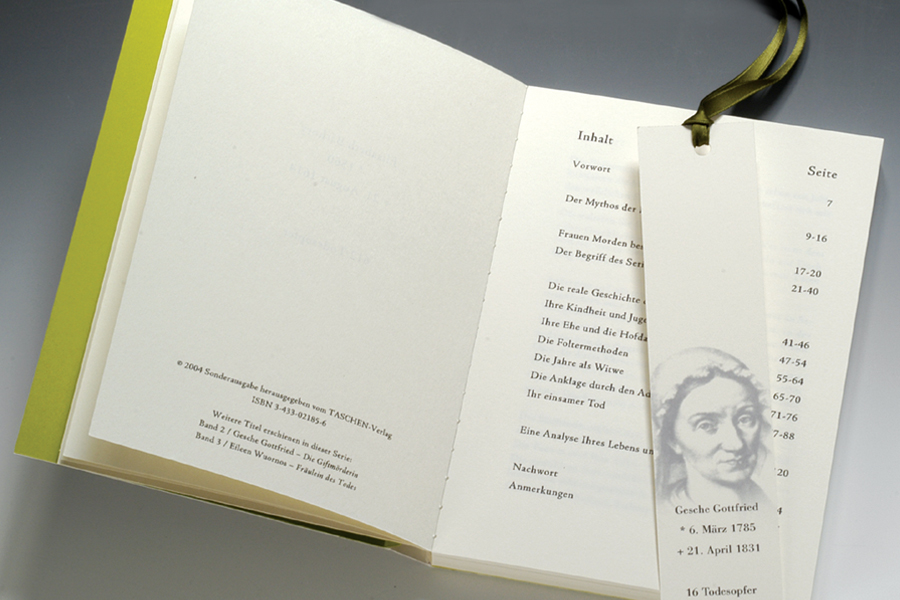 © 2004 Sonderausgabe herausgegeben vom TASCHEN-Verlag
ISBN 3-433-02185-6
Weitere Titel erschienen in dieser Serie:
Band 2 / Gesche Gottfried – Die Giftmörderin
Band 3 / Eileen Wuornos – Fräulein des Todes
Inhalt
Seite
Vorwort
7
Der Mythos der
9-16
Frauen Morden
17-20
Der Begriff des
21-40
Die reale Geschichte
41-46
Ihre Kindheit und
47-54
Ihre Ehe und die
55-64
Die Foltermethoden
65-70
Die Jahre als Witwe
71-76
Die Anklage durch den
7-88
Ihr einsamer Tod
Eine Analyse Ihres Lebens
20
Nachwort
4
Anmerkungen
Gesche Gottfried
* 6. März 1785
+ 21. April 1831
16 Todesopfer